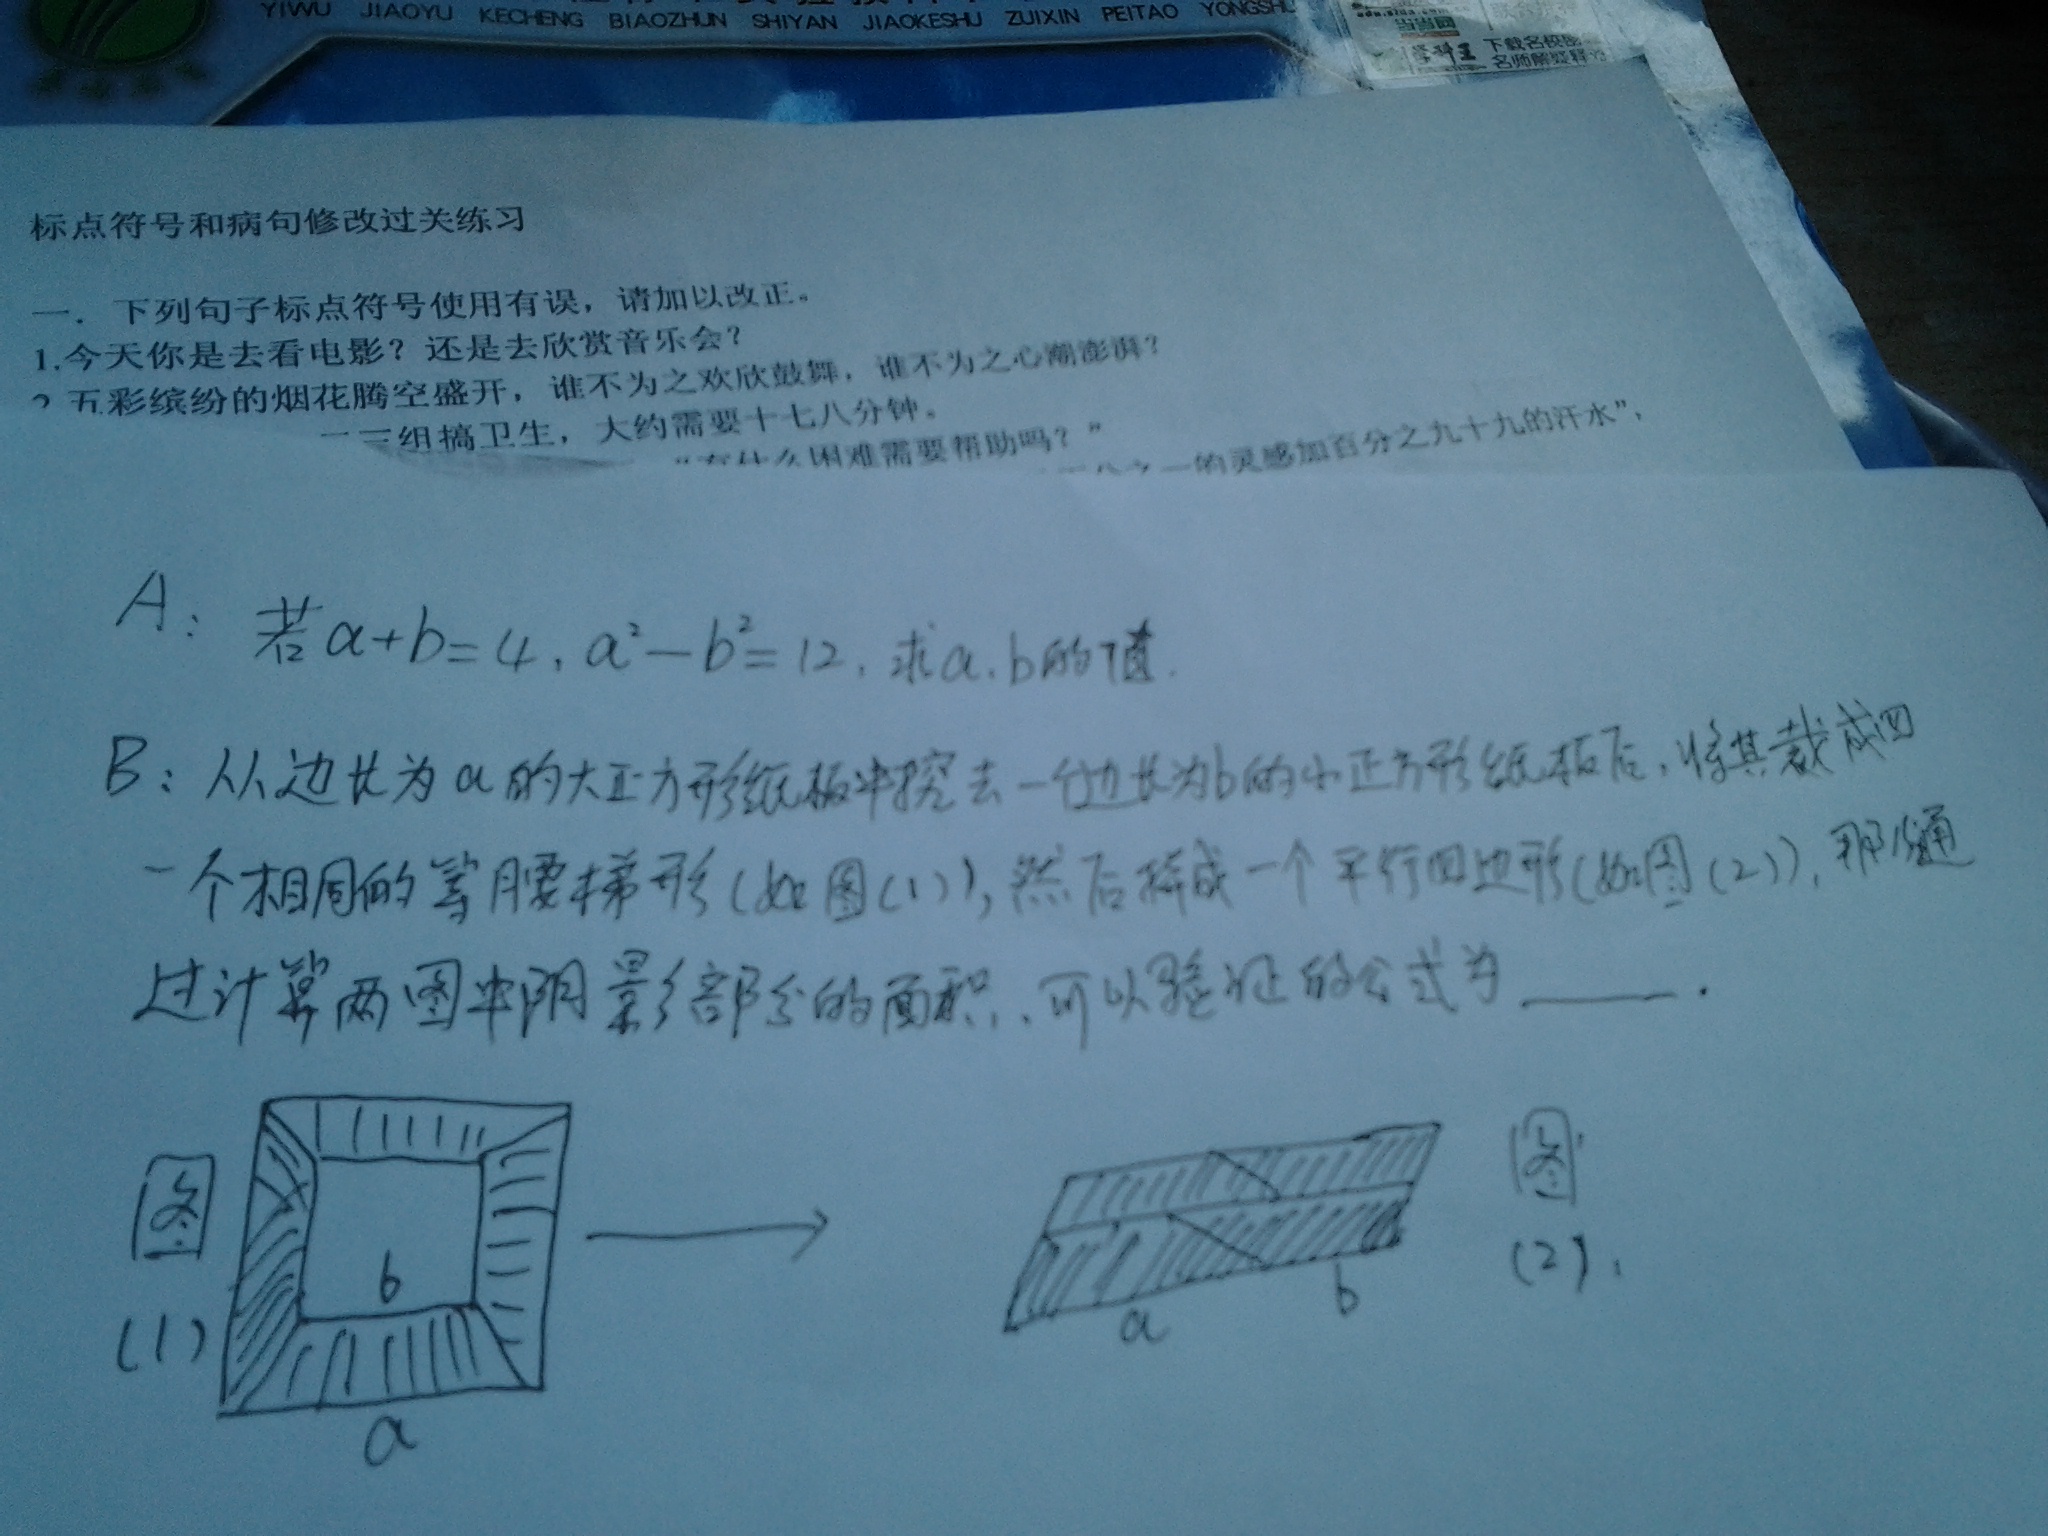 YIWU JIAOYU KECHENG BIAOZHUN SHIYAN JIAOKESHU ZUIXIN PEITAO YONGSHU
当当网
学科王 下载名校
名师解疑释
标点符号和病句修改过关练习
一．下列句子标点符号使用有误，请加以改正。
1.今天你是去看电影？还是去欣赏音乐会？
2.五彩缤纷的烟花腾空盛开，谁不为之欢欣鼓舞，谁不为之心潮澎湃？
二三组搞卫生，大约需要十七八分钟。
“有什么困难需要帮助吗？”
百分之一的灵感加百分之九十九的汗水”，
A：若a+b=4，a²－b²=12，求a、b的值.
B：从边长为a的大正方形纸板中挖去一个边长为b的小正方形纸板后，将其裁成四
个相同的等腰梯形(如图(1))，然后拼成一个平行四边形(如图(2))，那么通
过计算两图中阴影部分的面积，可以验证的公式为______．
图
(1)
b
a
a
b
图
(2)．